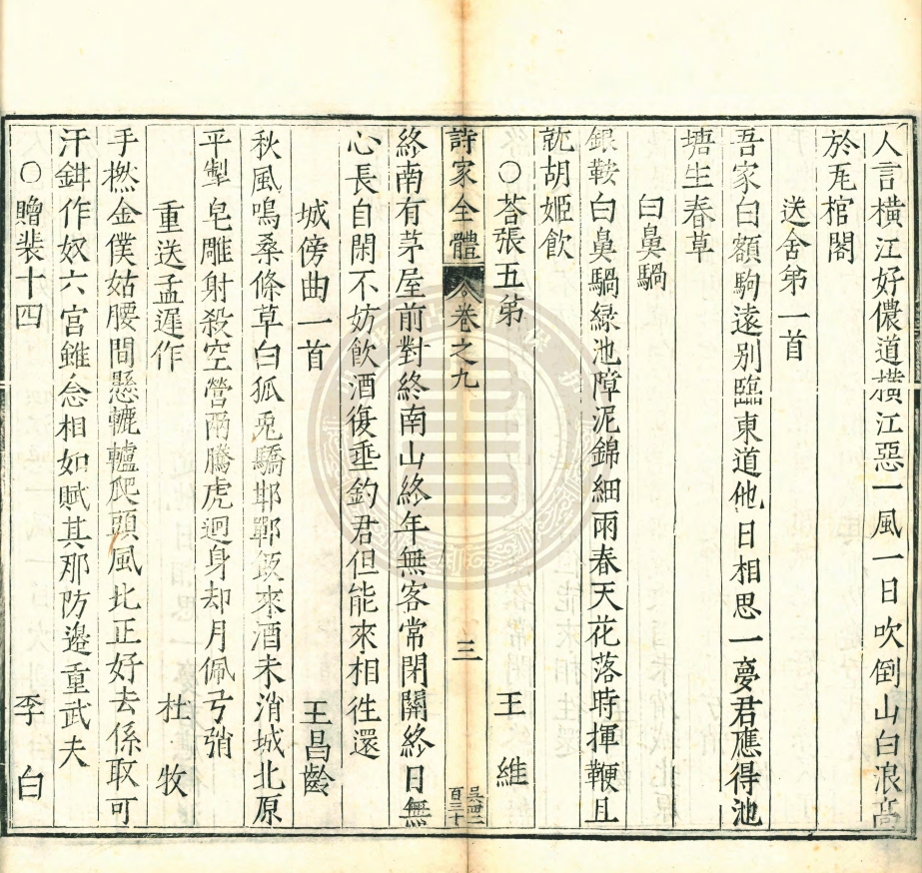 人言橫江好儂道橫江惡一風一日吹倒山白浪高
於瓦棺閣
送舍第一首
吾家白額駒遠別臨東道他日相思一夢君應得池
塘生春草
白鼻騧
銀鞍白鼻騧綠池障泥錦細雨春天花落時揮鞭且
就胡姬飲
○荅張五苐 王維
詩家全體 卷之九 三
終南有茅屋前對終南山終年無客常閉關終日無
心長自閑不妨飲酒復垂釣君但能來相徃還
城傍曲一首 王昌齡
秋風鳴桑條草白狐兎驕邯鄲飯來酒未消城北原
平掣皂雕射殺空營兩騰虎迴身却月佩弓弰
重送孟遲作 杜牧
手撚金僕姑腰間懸轆轤爬頭風北正好去係取可
汗鉗作奴六宮雖念相如賦其那防邉重武夫
○贈裴十四 李白